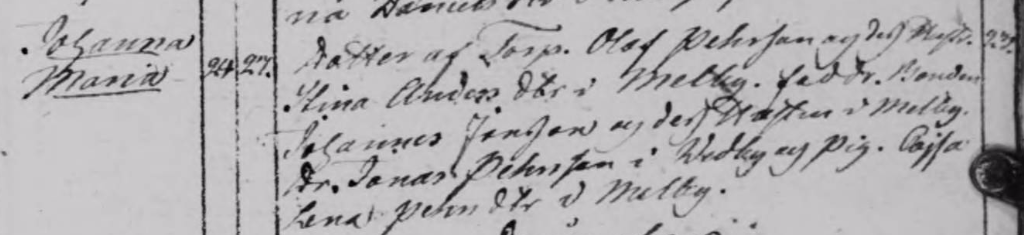 Johanna Maria 24. 27.
Dotter af Torp. Olof Pehrson og dess Hustr. 23.
Stina Anders dtr i Melby. faddr. Bonden
Johannes Jonson og dess Hustru i Melby.
Dr. Jonas Pehrson i Wedby og Pig. Cajsa
Lena Pehrsdtr i Melby.